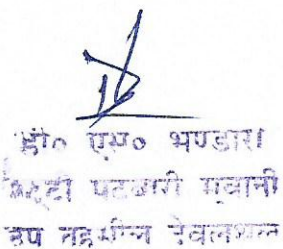 डी० एस० भण्डारी
पटवारी गुवानी
उप तहसील देवलथल